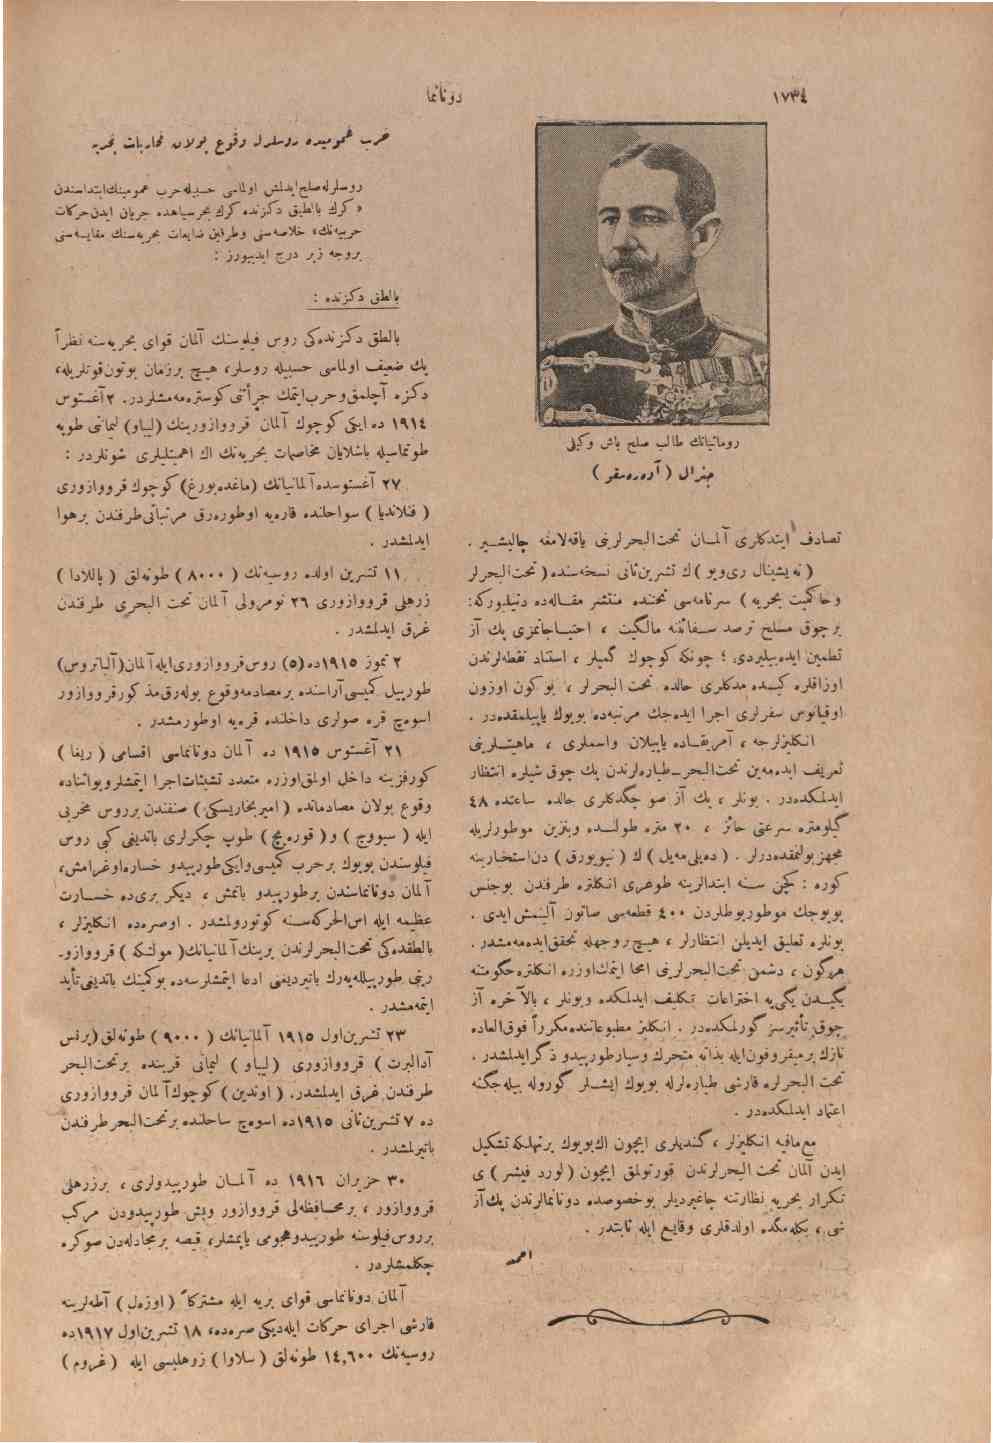 ١٧٣٤
دونانما
رومانيانك طالب صلح باش وكيلى
جنرال ( آوه‌ره‌سقو )
تصادف ايتدكلرى آلمـان تحت‌البحرلرينى ياقه‌لامغه چاليشـير .
( نه‌يشينال ری‌ويو ) ك تشرين ثانى نسخه‌سنده ( تحت‌البحرلر
وحاكميت بحريه ) سرنامه‌سى تحتنده منتشر مقـاله‌ده دنيليوركه :
برچوق مسلح ترصد سـفائننه مالكيت ، احتيـاجاتمزى پك آز
تطمين ايده‌بيليردى ؛ چونكه كوچوك گميلر ، استناد نقطه‌لرندن
اوزاقلره كيـده‌مدكلرى حالده تحت البحرلر ، بوكون اوزون
اوقيانوس سفرلرى اجرا ايده‌جك مرتبه‌ده بويوك ياپيلمقده‌در .
انكليزلرجه ، آمريقـاده ياپيلان واسملرى ، ماهيتـلرينى
تعريف ايده‌مه‌ين تحت‌البحر ـ طياره‌لرندن پك چوق شيلره انتظار
ايدلمكده‌در . بونلر ، پك آز صو چكدكلرى حالده ساعتده ٤٨
كيلومتره سرعتى حائز ، ٢٠ متره طولنـده وبنزين موطورلريله
مجهز بولنمقده‌درلر . ( ده‌يلى مه‌يل ) ك ( نيويورق ) دن استخبارينه
كوره : كچن سـنه ابتدالرينه طوغرى انكلتره طرفندن بوجنس
بويوجك موطوربوطلردن ٤٠٠ قطعه‌سى صاتون آلينمش ايدى .
بونلره تعليق ايديلن انتظارلر ، هيـچ روجهله تحقق ايده‌مه‌مشدر .
هركون ، دشمن تحت‌البحرلرينى امحا ايتمك اوزره انكلتره حكومتنه
يكيـدن يكى‌يه اختراعات تـكليف ايدلمـكده وبونلر ، بالآخره آز
چوق تأثيرسز كورلمكده‌در . انكليز مطبوعاتنده مكرراً فوق‌العاده
نازك برميقروفون ايله بذاته متحرك وسيار طورپيدو ذكر ايدلمشدر .
تحت البحرلره قارشى طياره‌لرله بويوك ايشـلر كوروله بيله جكنه
اعتماد ايدلمكده‌در .
مع‌مافيه انكليزلر ، كنديلرى ايچون اك بويوك برتهلـكه تشكيل
ايدن آلمان تحت البحرلرندن قورتولمق ايچون ( لورد فيشر ) ى
تـكرار بحريه نظارتنه چاغيرديلر بوخصوصده دونانمالرندن پك آز
شى ، بكله‌مكده اولدقلرى وقايع ايله ثابتدر .
احمد
حرب عموميده روسلرله وقوع بولان محاربات بحريه
روسلرله صلح ايدلمش اولماسى حسبيله حرب عمومينك ابتداسندن
« كرك بالطيق دكزنده كرك بحرسياهده جريان ايدن حركات
حربيه‌نك ، خلاصه‌سنى وطرفين ضايعات بحريه‌سنك مقايسه‌سنى
بروجه زير درج ايدييورز :
بالطق دكزنده :
بالطق دكزنده‌كى روس فيلوسـنك آلمان قواى بحريه‌سنه نظراً
پك ضعيف اولماسى حسبيله روسلر ، هيـچ برزمان بوتون قوتلريله ،
دكزه آچلمق وحرب ايتمك جرأتنى كوستره‌مه‌مشلردر . ٢ آغستوس
١٩١٤ ده ايكى كوچوك آلمان قرووازورينك ( ليباو ) ليمانى طوپه
طوتماسيله باشلايان مخاصمات بحريه‌نك اك اهميتليلرى شونلردر :
٢٧ آغستوسده آلمانيانك ( ماغده‌بورغ ) كوچوك قرووازورى
( فنلانديا ) سواحلنده قاره‌يه اوطوره‌رق مرتباتى طرفندن برهوا
ايدلمشدر .
١١ تشرين اولده روسيه‌نك ( ٨٠٠٠ ) طونه‌لق ( پاللادا )
زرهلى قرووازورى ٢٦ نومرولى آلمان تحت البحرى طرفندن
غرق ايدلمشدر .
٢ تموز ١٩١٥ ده ( ٥ ) روس قرووازورى ايله آلمان ( آلباتروس )
طورپيل كميسى آراسنده برمصادمه وقوع بوله‌رق مذكور قرووازور
اسوه‌چ قره صولرى داخلنده قره‌يه اوطورمشدر .
٢١ آغستوس ١٩١٥ ده آلمان دونانماسى اقسامى ( ريغا )
كورفزينه داخل اولمق اوزره متعدد تشبثات اجرا ايتمشلر وبواثناده
وقوع بولان مصادماتده ( امير بخاريسكى ) صنفندن برروس مخربى
ايله ( سيووچ ) و ( قوره‌يچ ) طوپ چكرلرى باتديغى كبى روس
فيلوسندن بويوك برحرب كميسى وايكى طورپيدو خساره اوغرامش ،
آلمان دونانماسندن برطورپيدو باتمش ، ديكر برى‌ده خسـارت
عظيمه ايله اس‌الحركه‌سـنه كوتورولمشدر . اوصره‌ده انـكليزلر ،
بالطقده‌كى تحت‌البحرلرندن برينك آلمانيانك ( مولتكه ) قرووازو-
رينى طورپيلله‌يه‌رك باتيرديغنى ادعا ايتمشلرسه‌ده بوكمينك باتديغى تأيد
ايتمه‌مشدر .
٢٣ تشرين اول ١٩١٥ آلمانيانك ( ٩٠٠٠ ) طونه‌لق ( پرنس
آدالبرت ) قرووازورى ( ليباو ) ليمانى قربنده برتحت‌البحر
طرفندن غرق ايدلمشدر . ( اوندين ) كوچوك آلمان قرووازورى
ده ٧ تشرين ثانى ١٩١٥ ده اسوه‌چ ساحلنده برتحت‌البحر طرفندن
باتيرلمشدر .
٣٠ حزيران ١٩١٦ ده آلمـان طورپيدولرى ، برزرهلى
قرووازور ، برمحـافظه‌لى قرووازور وبش طورپيدودن مركب
برروس فيلوسنه طورپيدو هجومى ياپمشلر ، قيصه برمجادله‌دن صوكره
چكلمشلردر .
آلمان دونانماسى قواى بريه ايله مشتركاً ( اوزه‌ل ) آطه‌لرينه
قارشى اجراى حركات ايله‌ديكى صره‌ده ، ١٨ تشرين اول ١٩١٧ ده
روسيه‌نك ١٤,٦٠٠ طونه‌لق ( سلاوا ) زرهليسى ايله ( غروم )